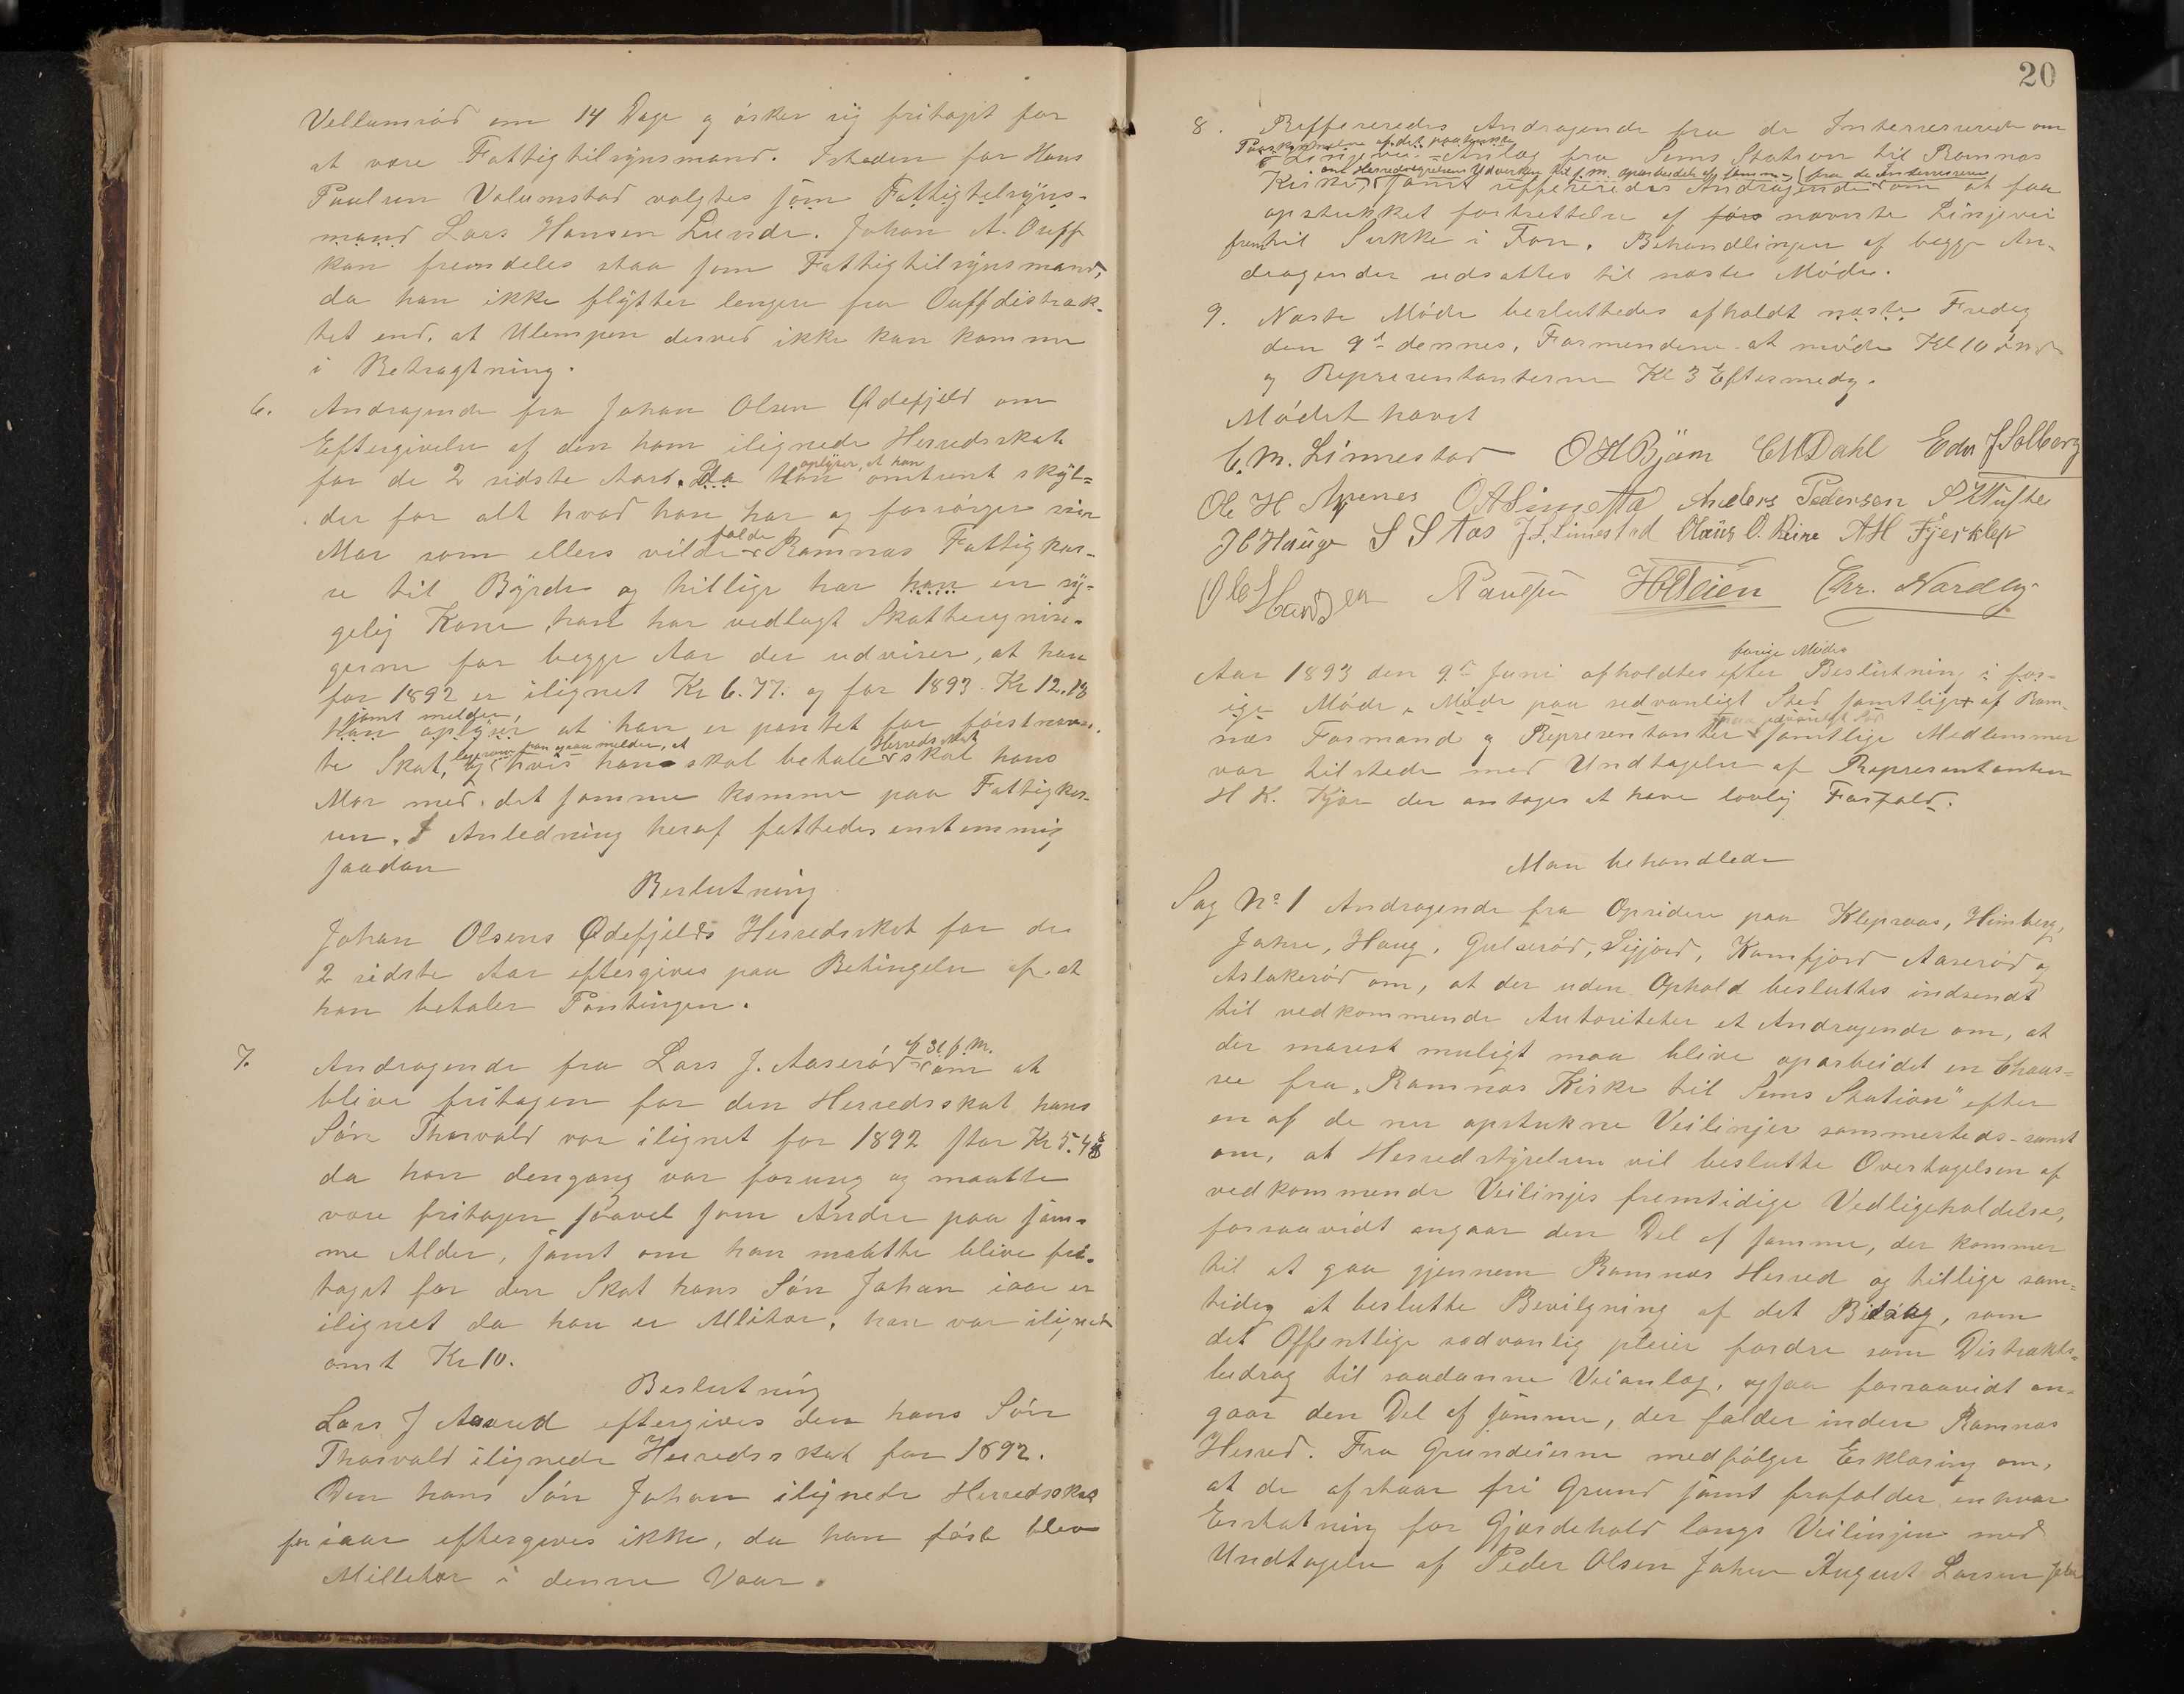 Vellumsrød om 14 Dage og ósker sig fritaget for
at være Fattigtilsynsmand. Isteden for Hans
Paulsen Valumstad valgtes som Fattigtilsyns-
mand Lars Hansen Lunde. Johan A. Ouff
kan fremdeles staa som Fattigtilsynsmand,
da han ikke flytter lengere fra Ouffdistrak-
tet end, at Ulempen derved ikke kan komme
i Betragtning.
6. Andragende fra Johan Olsen Ødefjeld om
Eftergivelse af den ham ilignede Herredsskat
for de 2 sidste Aar. Da Han oplyser, at han omtrent skyl=
der for alt hvad han har og forsørger sin
Mor som ellers vilde falde Ramnæs Fattigkas-
se til Byrde og tillige har han en sy-
gelig Kone, han har vedlagt Skatteregnin-
gerne for begge Aar der udviser, at han
for 1892 er ilignet Kr 6.77. og for 1893 Kr 12.18
samt melder,
Han oplyser at han er pantet for førstnævn-
ligesom han ogsaa melder, at Herredsskat
te Skat, og hvis han skal betale skal hans
Mor med det samme komme paa Fattigkas-
sen. I Anledning heraf fattedes enstemmig
saadan
Beslutning
Johan Olsens Ødefjelds Herredsskat for de
2 sidste Aar eftergives paa Betingelse af at
han betaler Pantingen.
7. Andragende fra Lars J. Aaserød af 31 f. M. om at
blive fritagen for den Herredsskat hans
Søn Thorvald var ilignet for 1892 stor Kr 5.48
da han dengang var for ung og maatte
være fritagen saavel som Andre paa sam-
me Alder, samt om han maatte blive fri-
taget for den Skat hans Søn Johan iaar er
ilignet da han er Militær, han var ilignet
omt Kr 10.
Beslutning
Lars J Aasrød eftergives den hans Søn
Thorvald ilignede Herredsskat for 1892.
Den hans Søn Johan ilignede Herredsskat
for iaar eftergives ikke, da han først blev
Milletær i denne Vaar.
20
8. Refereredes Andragende fra de Interresserede om
Paaskyndelse af det paatænkte
Linjevei-Anlæg fra Sems Station til Ramnæs
om Herredsstyrelsens Udvirken til f. m. oparbeidelse af samme, (fra de Interresserede
Kirke, samt reffereredes Andragende om at faa
opstukket fortsettelse af førs nævnte Linjevei
frem til Sukke i Fon. Behandlingen af begge An-
dragender udsattes til næste Møde.
9. Næste Møde besluttedes afholdt næste Fredag
den 9de dennes, Formændene at møde Kl 10
og Representanterne Kl 3 Eftermedg.
Mødet hævet
C. M. Linnestad O H Bjöm C M Dahl Edv J Solberg
Ole H Apenes Anders Pedersen
J C Hauge S S Aas J. L. Linnestad Olaus O. Reine A H Fjerklep
Ole Hansen Paulsen Chr. Nordby
forige Mødes
Aar 1893 den 9de Juni afholdtes efter Beslutning i for-
ige Møde, Møde paa sedvanligt Sted samtlige af Ram-
næs Formænd og Representanter samtlige Medlemmer
var tilstede med Undtagelse af Representanten
H K. Kjær der antages at have lovlig Forfald.
Man behandlede
Sag No 1 Andragende fra Opsidere paa Klepraas, Himberg,
Jahre, Haug, Gulserød, Sigjord, Kamfjord Aaserød og
Aslakerød om, at der uden Ophold besluttes indsendt
til vedkommende Autoriteter et Andragende om, at
der snarest muligt maa blive oparbeidet en Chaus=
see fra "Ramnæs Kirke til Sems Station" efter
en af de nu opstukne Veilinjer sammesteds-samt
om, at Herredstyrelsen vil beslutte Overtagelsen af
vedkommende Veilinjes fremtidige Vedligeholdelse,
forsaavidt angaar den Del af samme, der kommer
til at gaa gjennem Ramnæs Herred og tillige sam=
tidig at beslutte Bevilgning af det Bidrag, som
det Offentlige sædvanlig pleier fordre som Distrikts=
bedrag til saadanne Veianlæg, ogsaa forsaavidt an-
gaar den Del af samme, der falder inden Ramnæs
Herred. Fra Grundeierne medfølger Erklæring om,
at de afstaar fri Grund samt frafalder enhver
Erstatning for Gjærdehold langs Veilinjen med
Undtagelse af Peder Olsen Jahre August Larsen Jahre